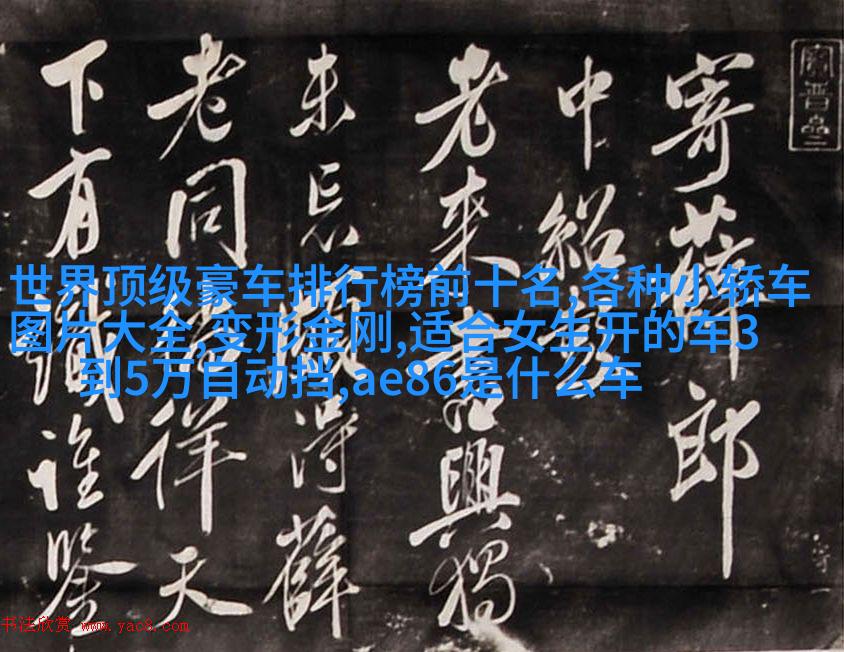 寄薛郎
中紹彭
老来書興獨
未忘頗得薛
老同徜徉天
下有識誰鑒
世界顶级豪车排行榜前十名,各种小轿车
图片大全,变形金刚,适合女生开的车3
到5万自动挡,ae86是什么车
书法欣赏 www.yac8.com